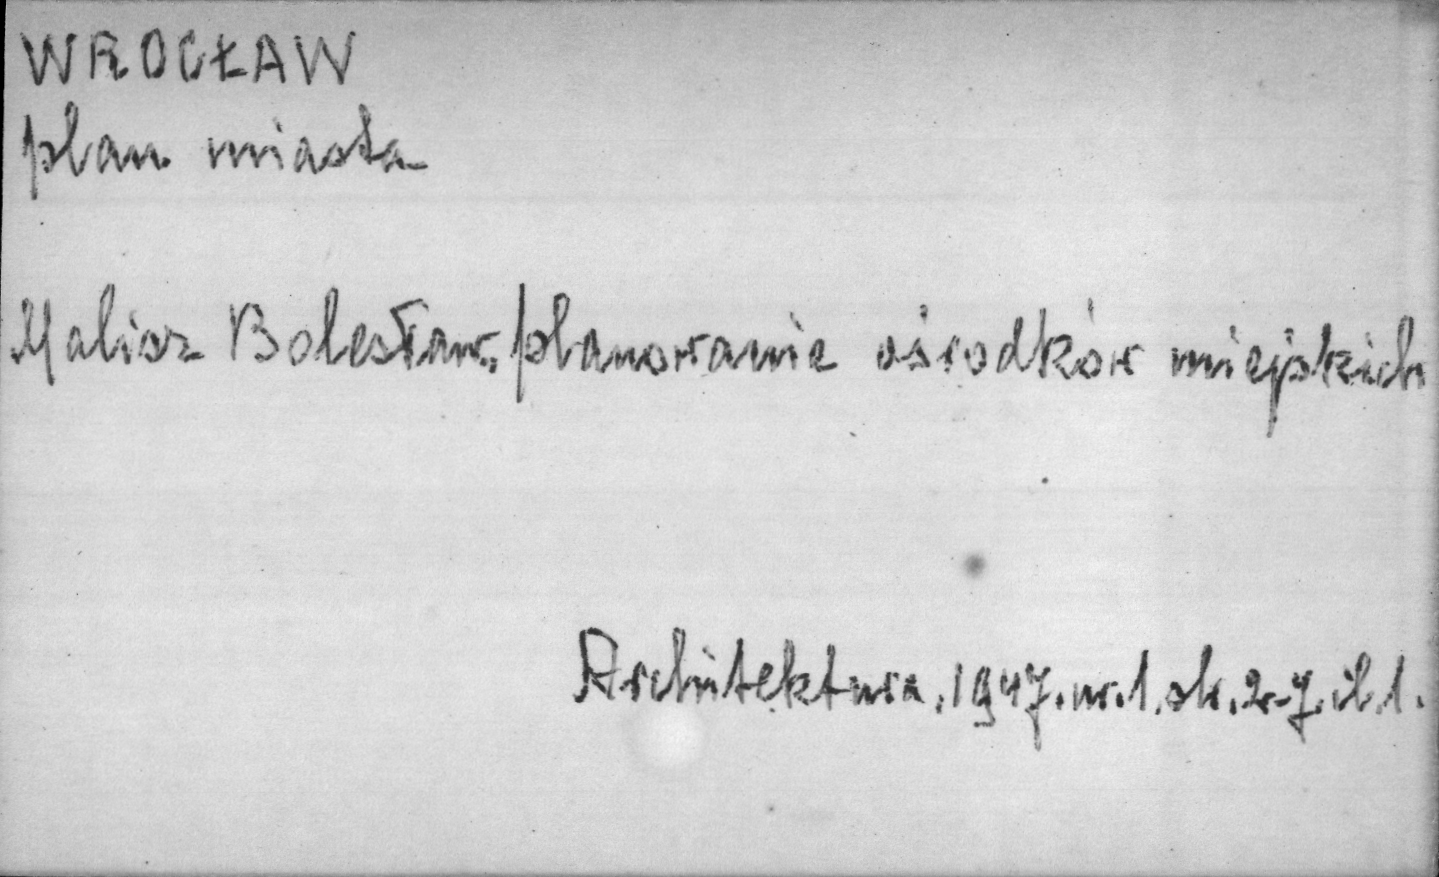 WROCŁAW
plan miasta
Malisz Bolesław, planowanie ośrodków miejskich
Architektura. 1947. nr. 1. str. 2-7. il. 1.